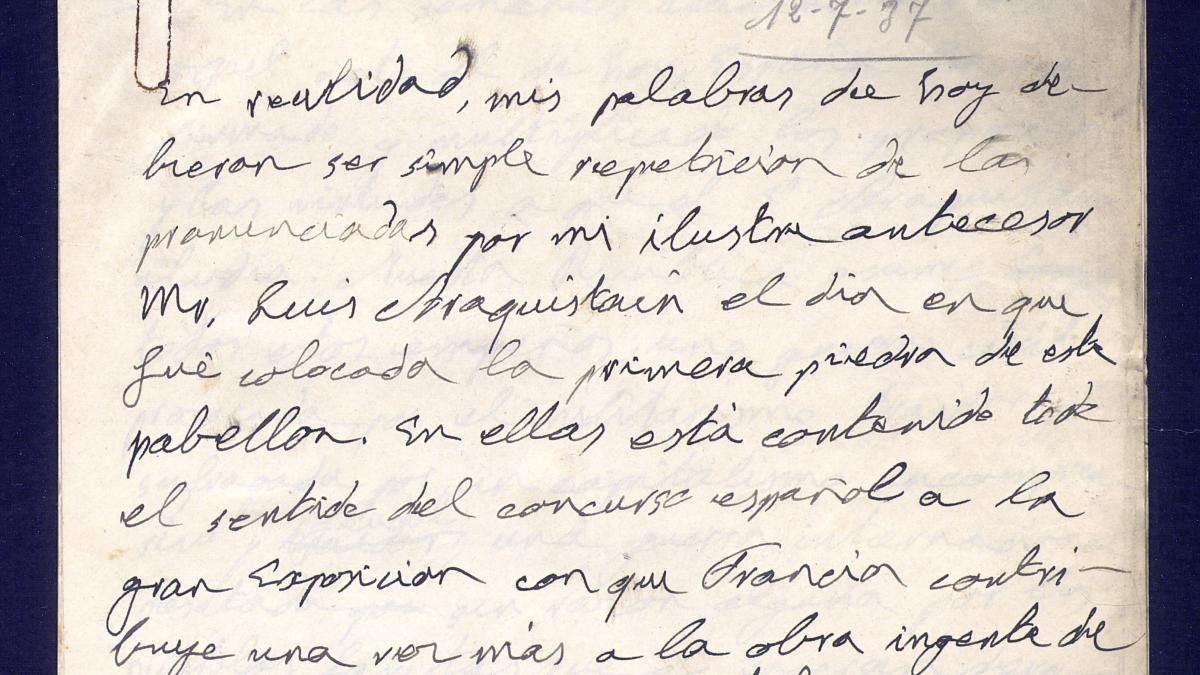 12-7-37
En realidad, mis palabras de hoy de-
bieran ser simple repetición de las
pronunciadas por mi ilustre antecesor
Mr. Luis Araquistain el día en que
fué colocada la primera piedra de este
pabellón. En ellas está contenido todo
el sentido del concurso español a la
gran Exposición con que Francia contri-
buye una vez más a la obra ingente de